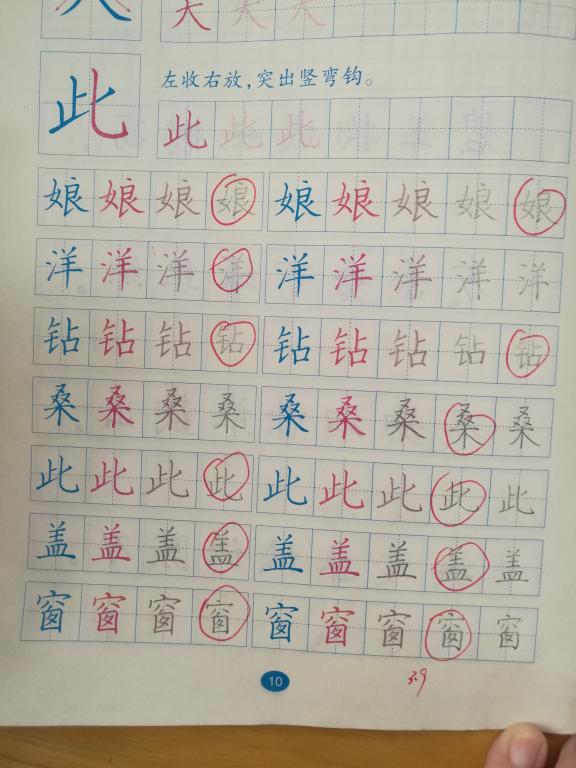 大 大 大 大
左收右放,突出竖弯钩。
此 此 此 此
娘 娘 娘 娘 娘 娘 娘 娘 娘
洋 洋 洋 洋 洋 洋 洋 洋 洋
钻 钻 钻 钻 钻 钻 钻 钻 钻
桑 桑 桑 桑 桑 桑 桑 桑 桑
此 此 此 此 此 此 此 此 此
盖 盖 盖 盖 盖 盖 盖 盖 盖
窗 窗 窗 窗 窗 窗 窗 窗 窗
10
3.9